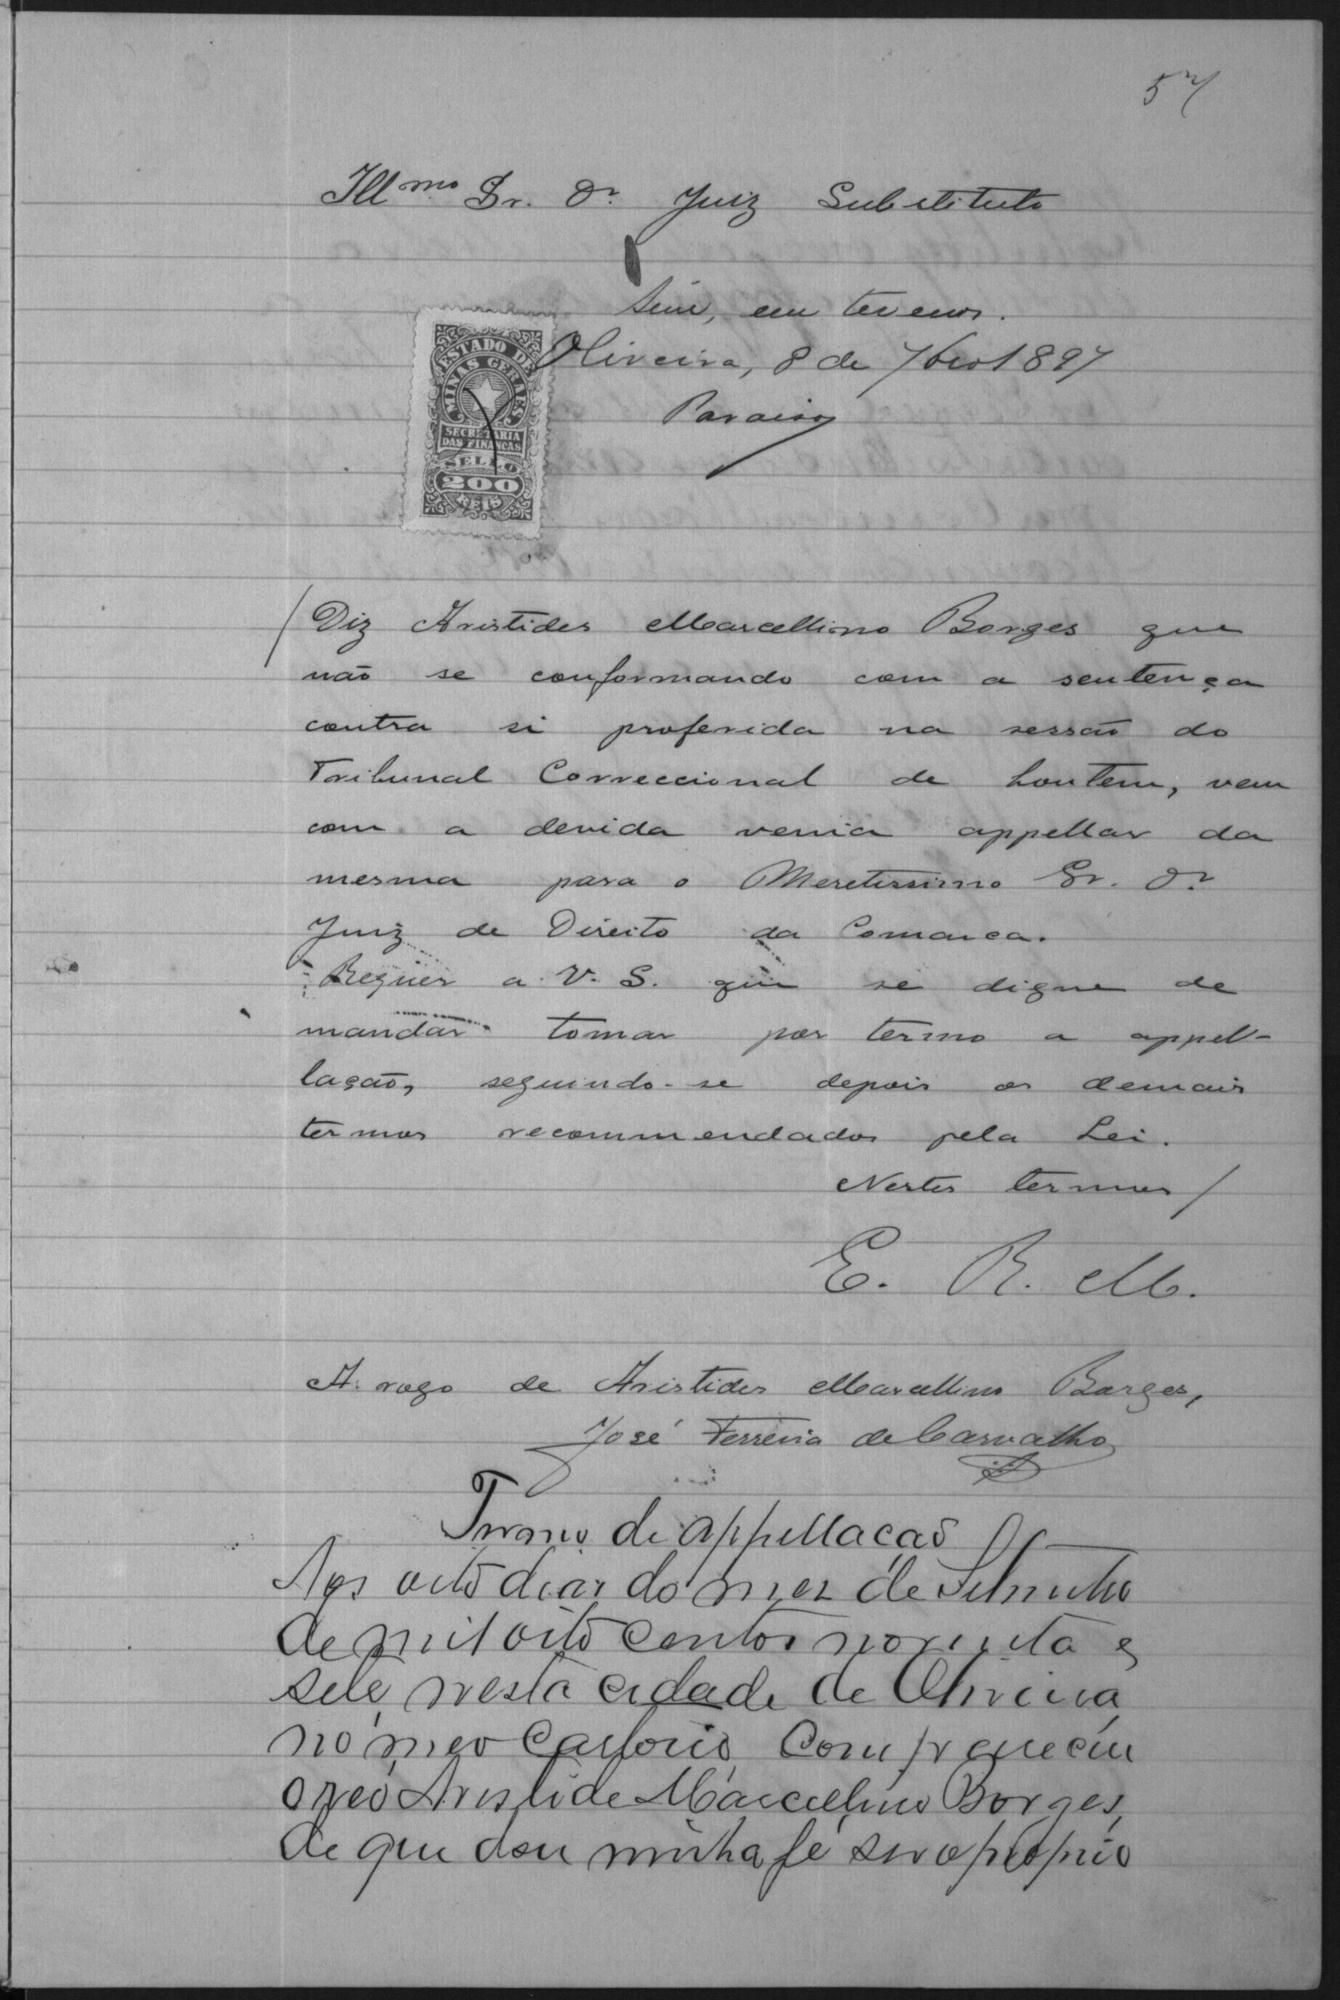 57
Illmo Sr. Dr Juiz Substituto
Sim, em termos.
Oliveira, 8 de 7bro 1897
Paraiso
ESTADO DE
MINAS GERAES
SECRETARIA
DAS FINANÇAS
SELLO
200
REIS
Diz Aristides Marcellino Borges que
não se conformando com a sentença
contra si proferida na sessão do
Tribunal Correccional de hontem, vem
com a devida venia appellar da
mesma para o Meretissimo Sr. Dr
Juiz de Direito da Comarca.
Requer a V. S. que se digne de
mandar tomar por termo a appel-
lação, seguindo-se depois os demais
termos recommendados pela Lei.
Nestes termos
E. R. M.
A rogo de Aristides Marcellino Borges,
José Ferreira de Carvalho
Termo de appellação
Aos oito dias do mez de Setembro
de mil oito centos noventa e
sete, nesta cidade de Oliveira
no meo Cartorio, Compareceu
o reo Aristide Marcellino Borges,
de que dou minha fé ser o proprio